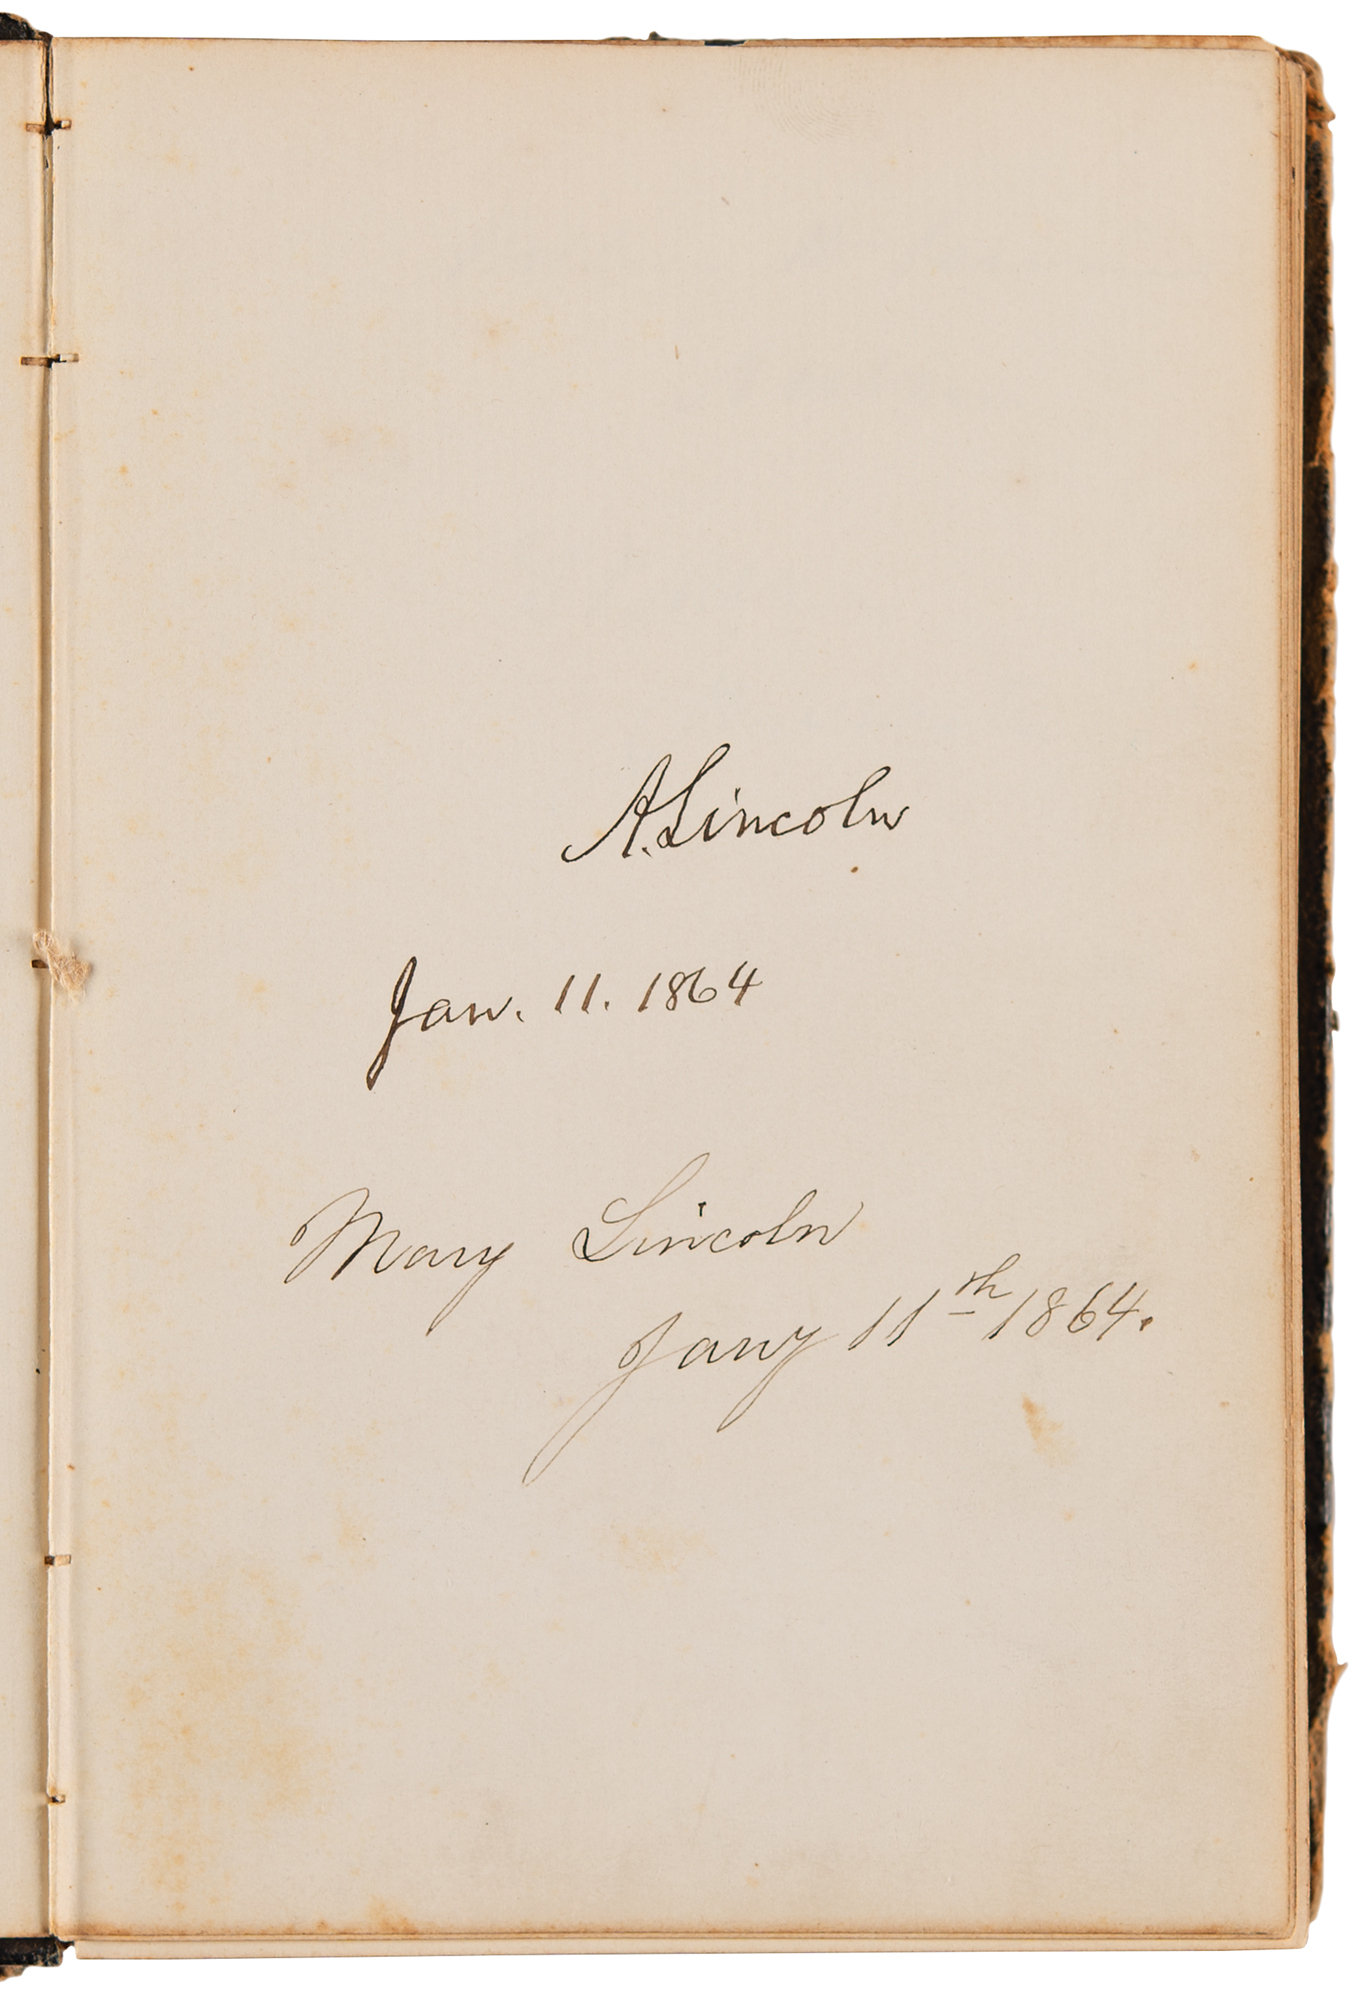 A. Lincoln
Jan. 11. 1864
Mary Lincoln
Jany 11th 1864.